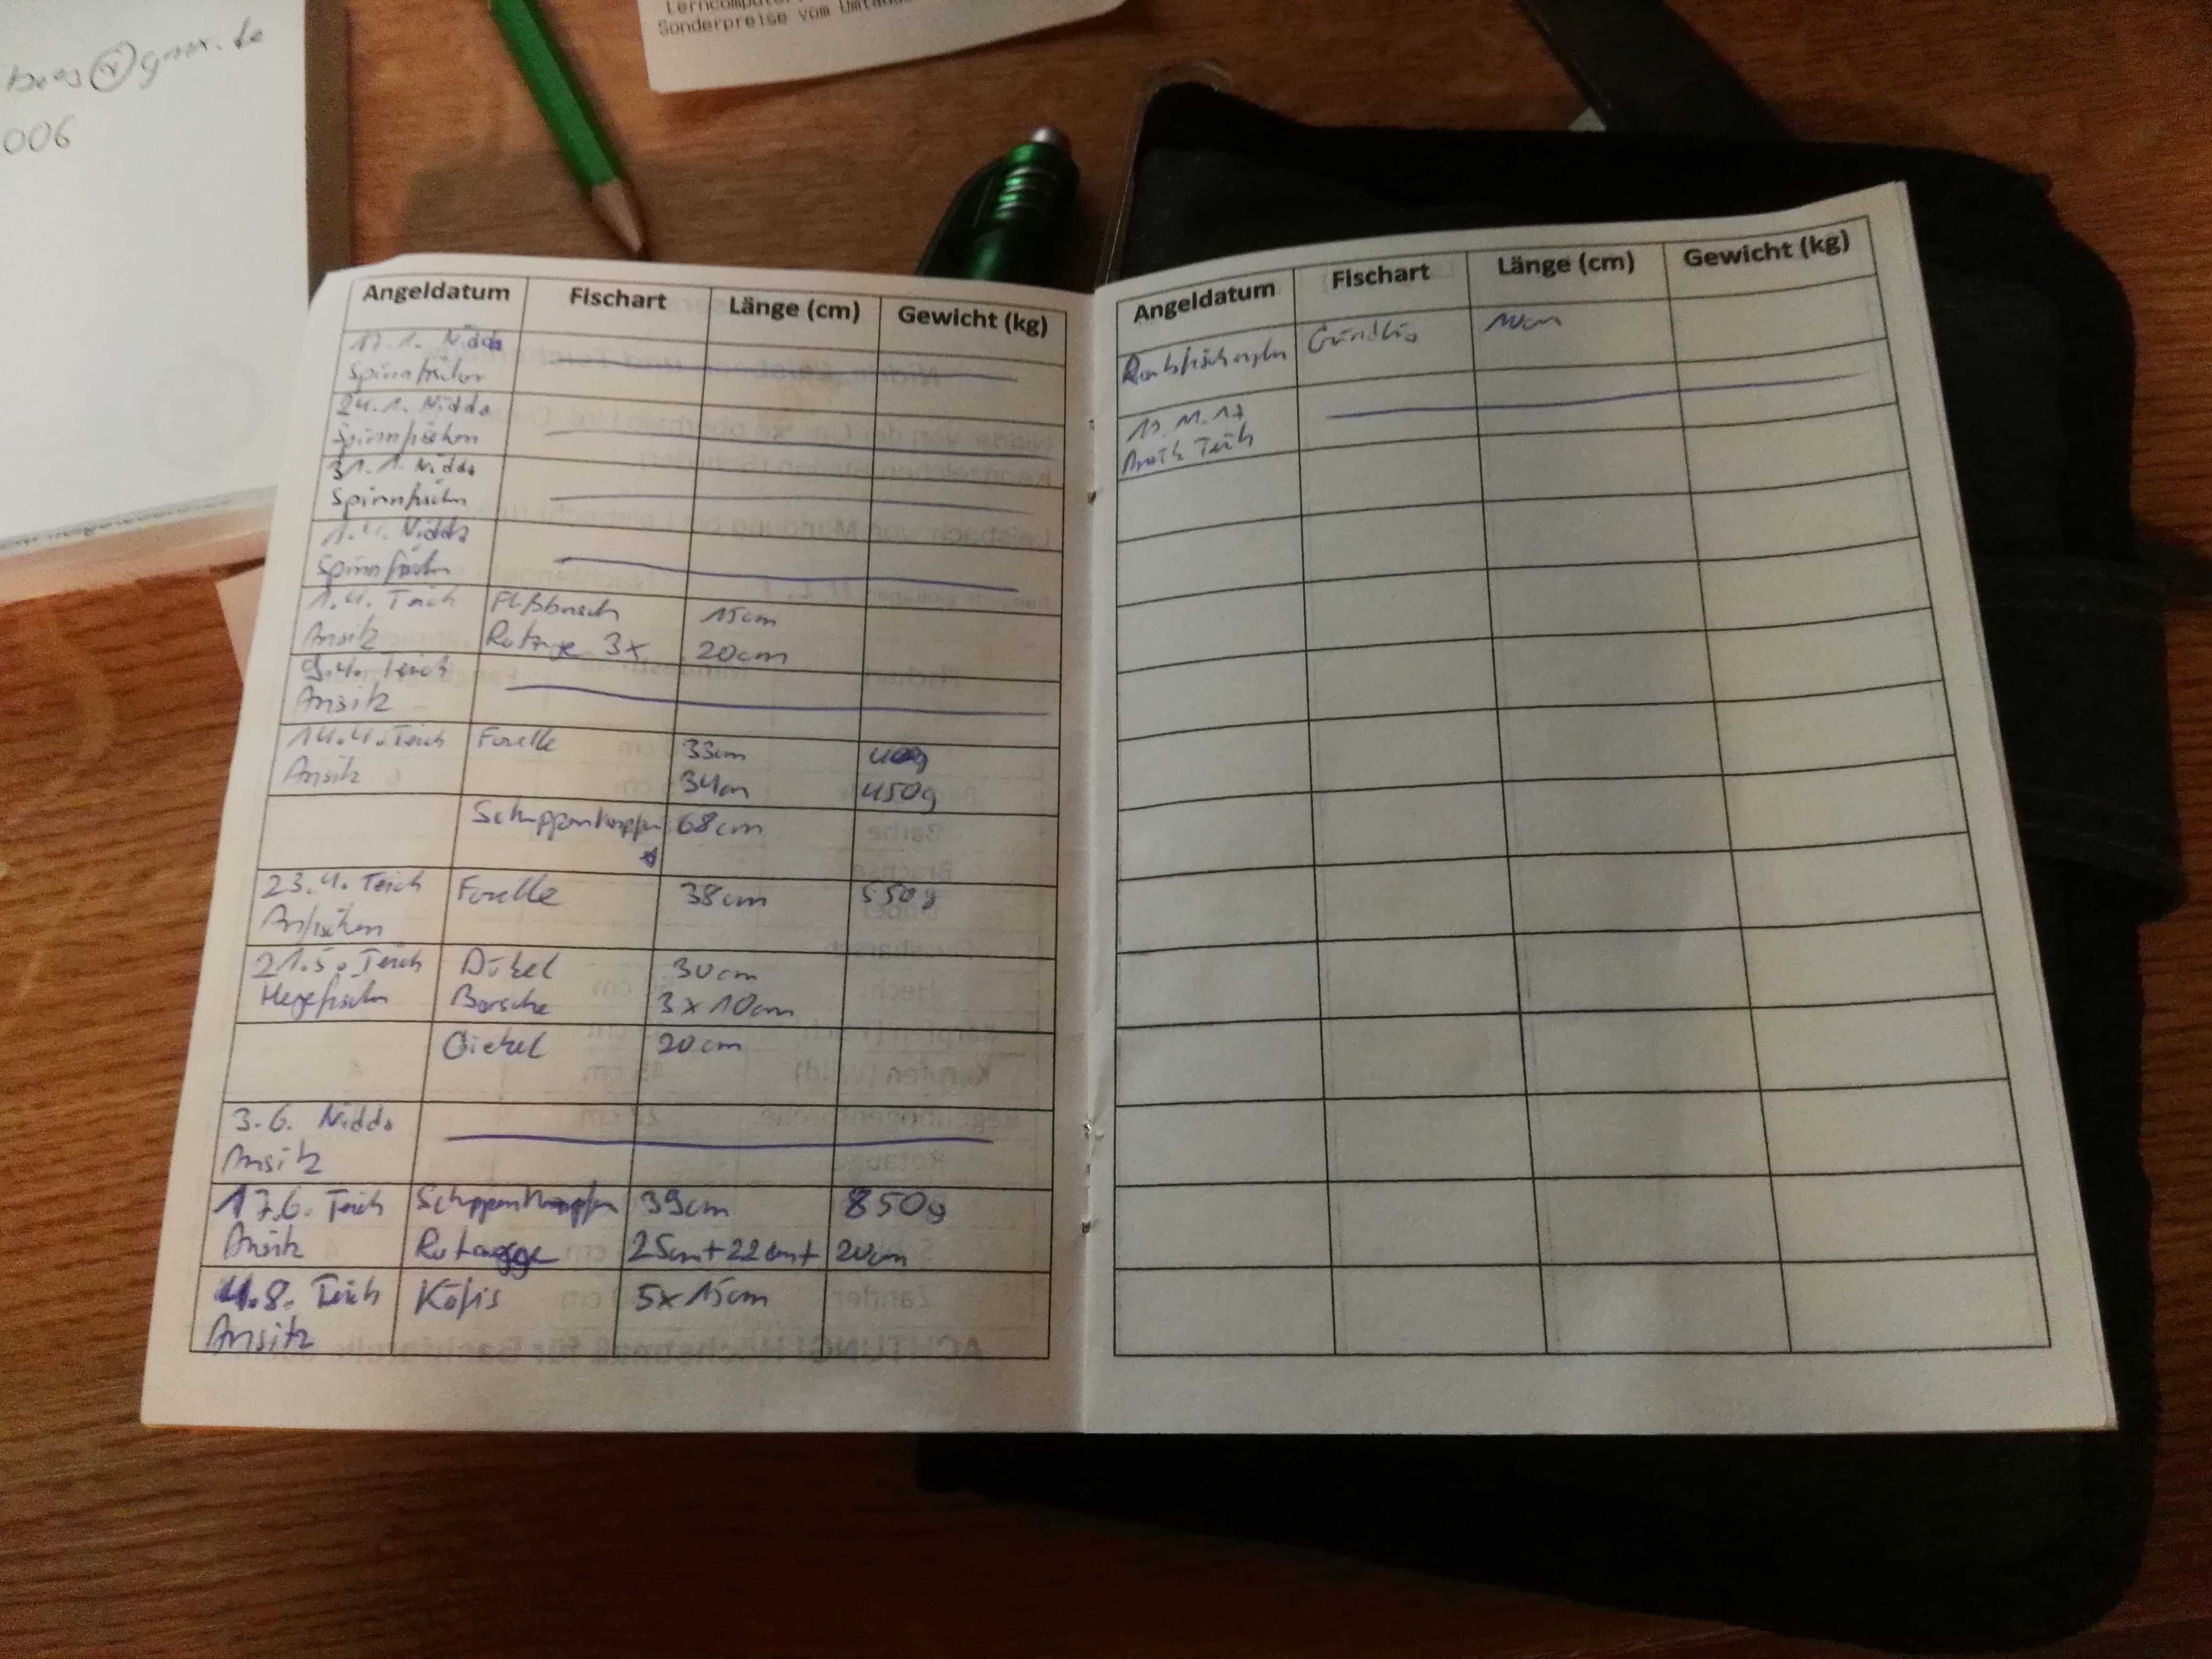 @gmx.de
006
Lerncomputer
Sonderpreise vom Umtausch
Angeldatum Fischart Länge (cm) Gewicht (kg)
17.1. Nidda
Spinnfischen
24.1. Nidda
Spinnfischen
31.1. Nidda
Spinnfischen
1.4. Nidda
Spinnfischen
1.4. Teich Flßbarsch 15cm
Ansitz Rotauge 3x 20cm
9.4. Teich
Ansitz
14.4. Teich Forelle 33cm
Ansitz 34cm 450g
Schuppenkarpfen 68cm
23.4. Teich Forelle 38cm 550g
Anfischen
21.5. Teich Döbel 30cm
Hegefischen Barsche 3x10cm
Giebel 20cm
3.6. Nidda
Ansitz
17.6. Teich Schuppenkarpfen 39cm 850g
Ansitz Rotauge 25cm+22cm+ 20cm
4.8. Teich Köfis 5x15cm
Ansitz
Angeldatum Fischart Länge (cm) Gewicht (kg)
Raubfischangeln 10cm
Teich